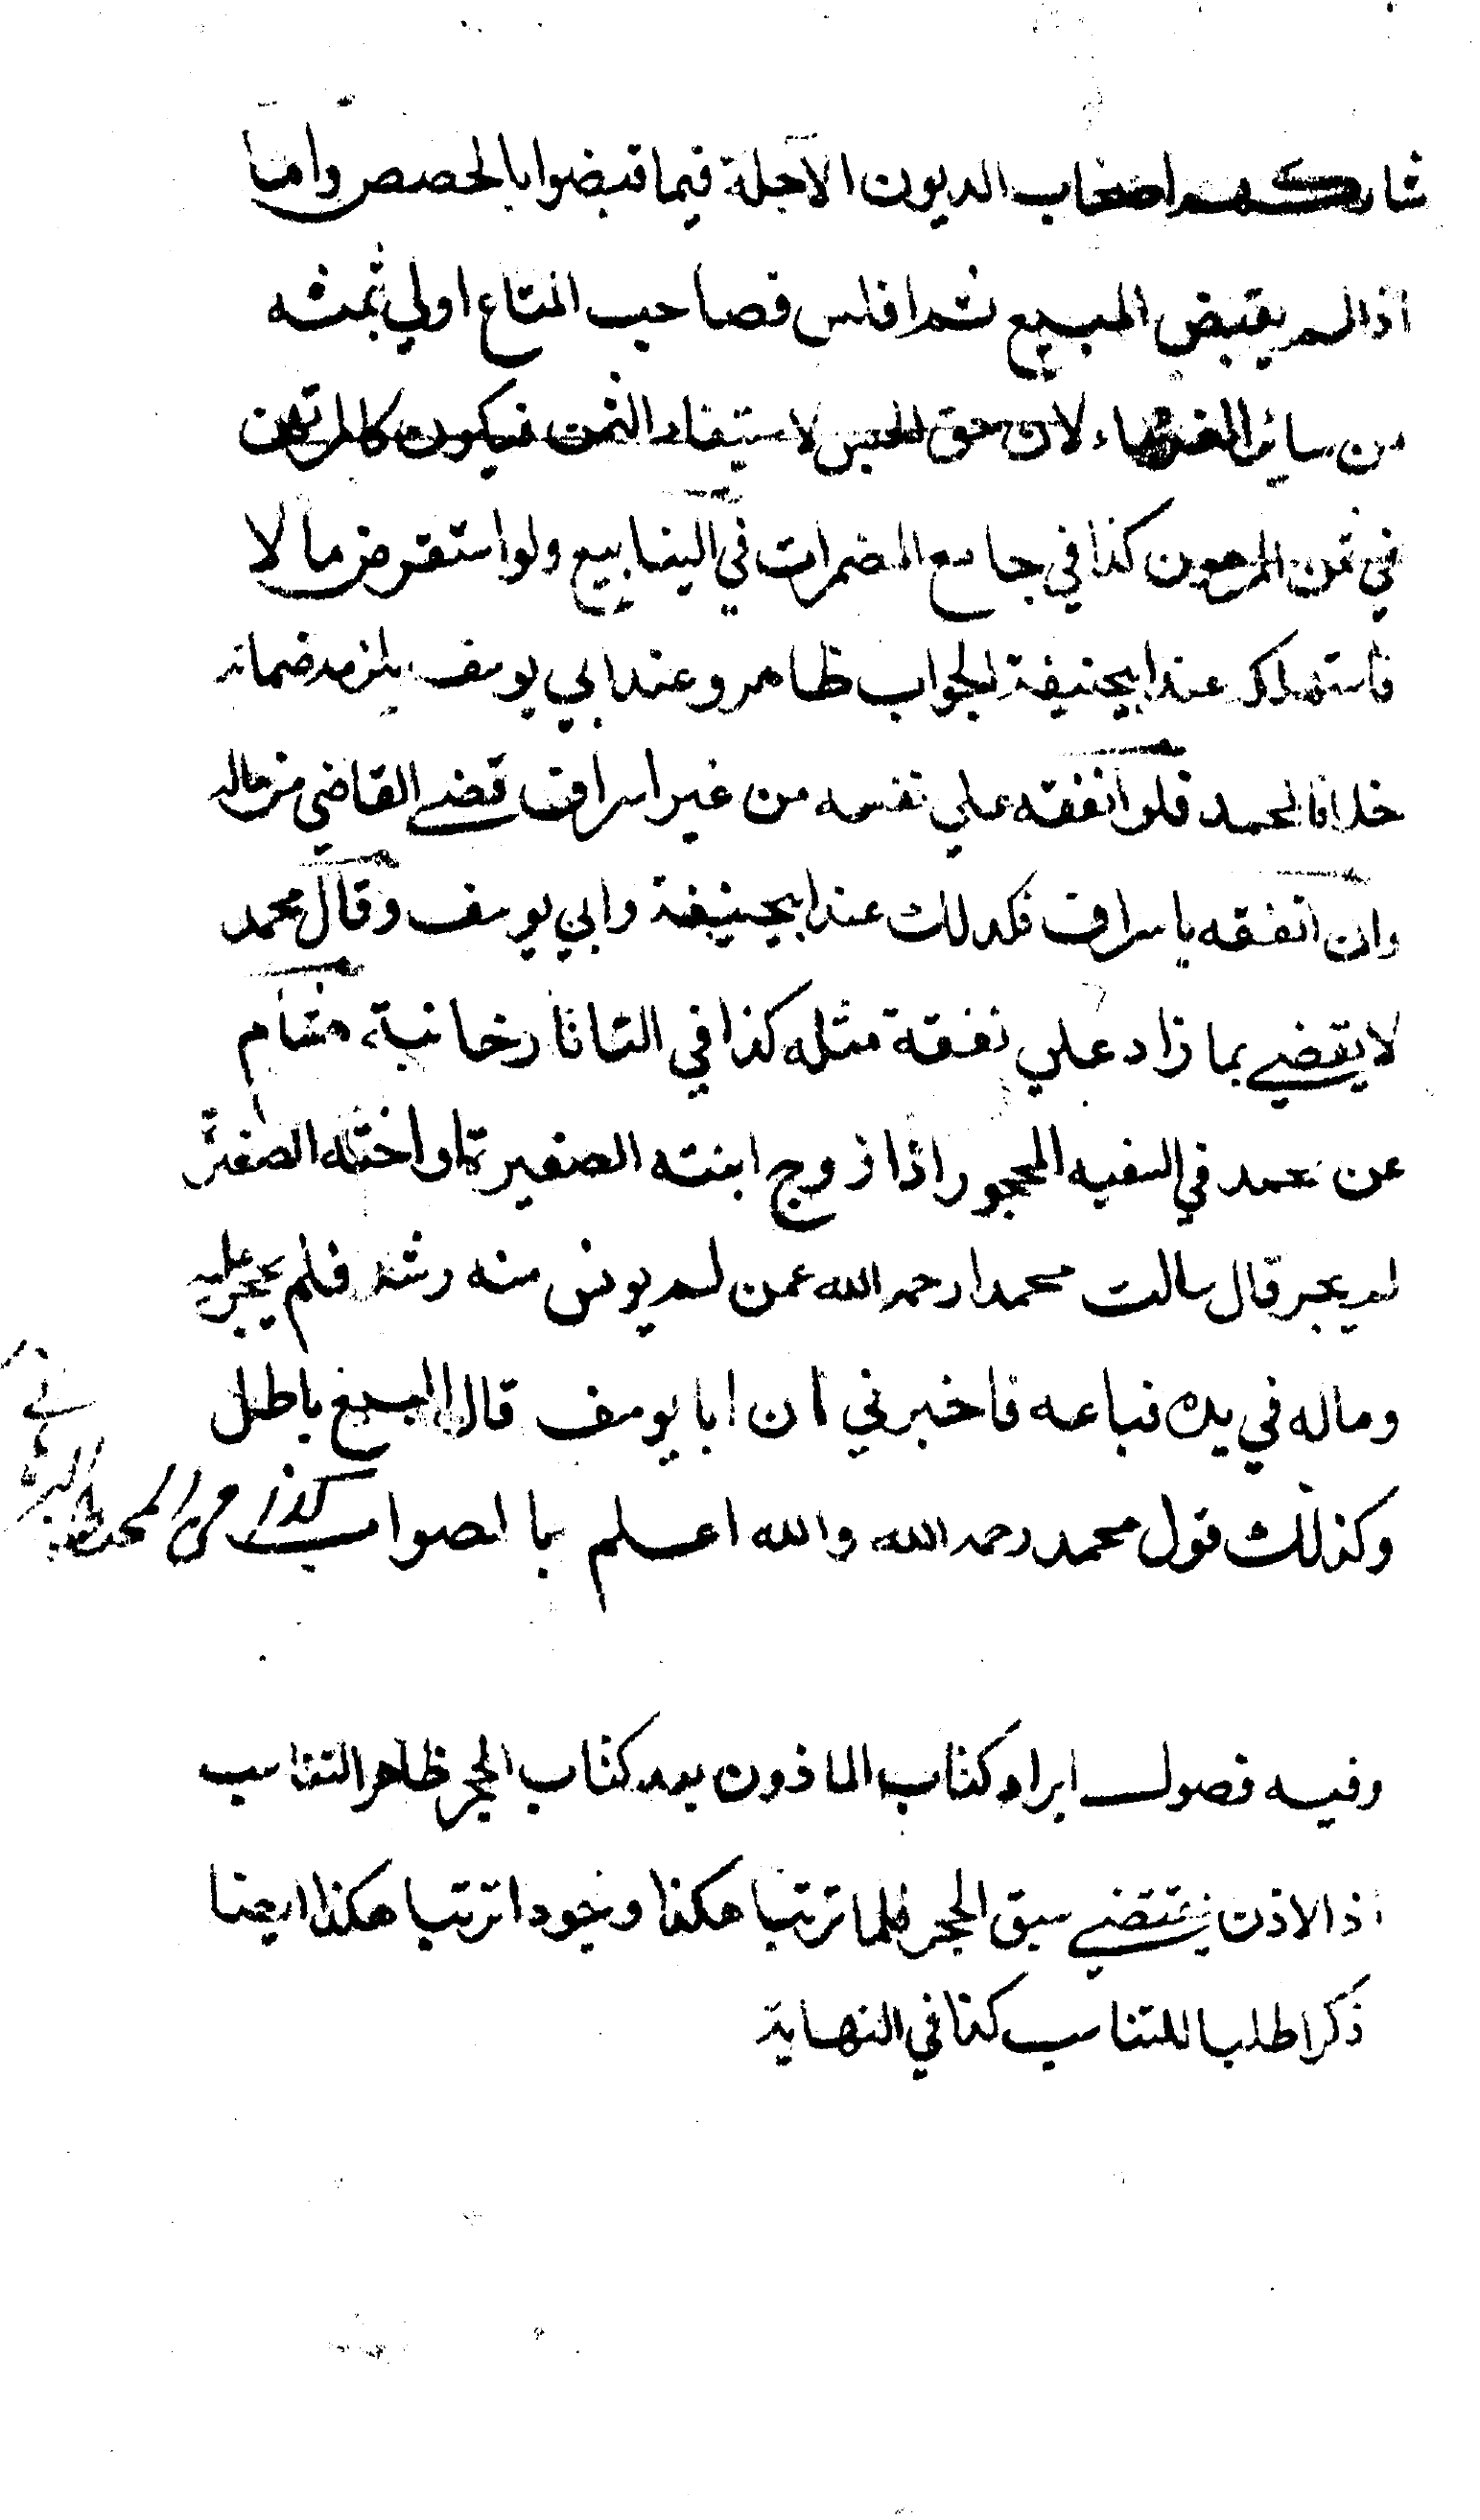 شاركهم اصحاب الديون الآجلة فيما قبضوا بالحصص واما
اذا لم يقبض المبيع ثم افلس فصاحب المتاع اولي بثمنه
من سائر الغرماء لان حق الحبس لاستيفاء الثمن فيكون كالمرتهن
في ثمن المرهون كذا في جامع المضمرات في الينابيع ولو استقرض مالا
فاستهلكه عند ابيحنيفة الجواب ظاهر وعند ابي يوسف يلزمه ضمانه
خلافا لمحمد فلو انفقه علي نفسه من غير اسراف قضي القاضي من ماله
وان انفقه باسراف فكدلك عند ابيحنيفة وابي يوسف وقال محمد
لا يقضي بما زاد علي نفقة مثله كذا في التاتارخانية هشام
عن محمد في السفيه المحجور اذا زوج ابنته الصغيرة او اخته الصغيرة
لم يجز قال سالت محمدا رحمه الله عمن لم يونس منه رشد فلم يحجر عليه
وماله في يده فباعه فاخبرني ان ابا يوسف قال البيع باطل
وكذلك قول محمد رحمه الله والله اعلم بالصواب كذا في المحيط
وفيه فصول ايراد كتاب الماذون بعد كتاب الحجر ظاهر التناسب
اذ الاذن يقتضي سبق الحجر فلما ترتبا هكذا وجودا ترتبا هكذا ايضا
ذكرا طلبا للتناسب كذا في النهاية